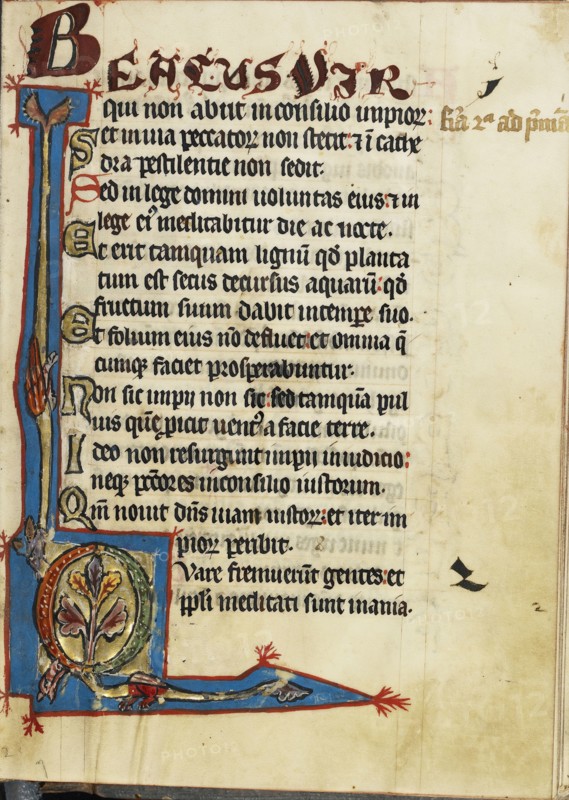 BEATUS VIR
qui non abiit in consilio impioꝝ:
Set in uia peccatoꝝ non stetit: ⁊ ī cathe
dra pestilentie non sedit.
Sed in lege domini uoluntas eius: ⁊ in
lege eiꝰ meditabitur die ac nocte.
Et erit tamquam lignū qđ planta
tum est secus decursus aquarū: qđ
fructum suum dabit in tempe suo.
Et folium eius nō defluet: et omnia q̄
cumqꝫ faciet prosperabuntur.
Non sic impii non sic: sed tamquā pul
uis quē ꝓicit uentꝰ a facie terre.
Ideo non resurgunt impii in iudicio:
neqꝫ pctōres in consilio iustorum.
Qm̄ nouit dn̄s uiam iustoꝝ: et iter im
pioꝝ peribit.
Quare fremuerūt gentes: et
ppli meditati sunt inania.
fīa 2ª ad pīmā
2